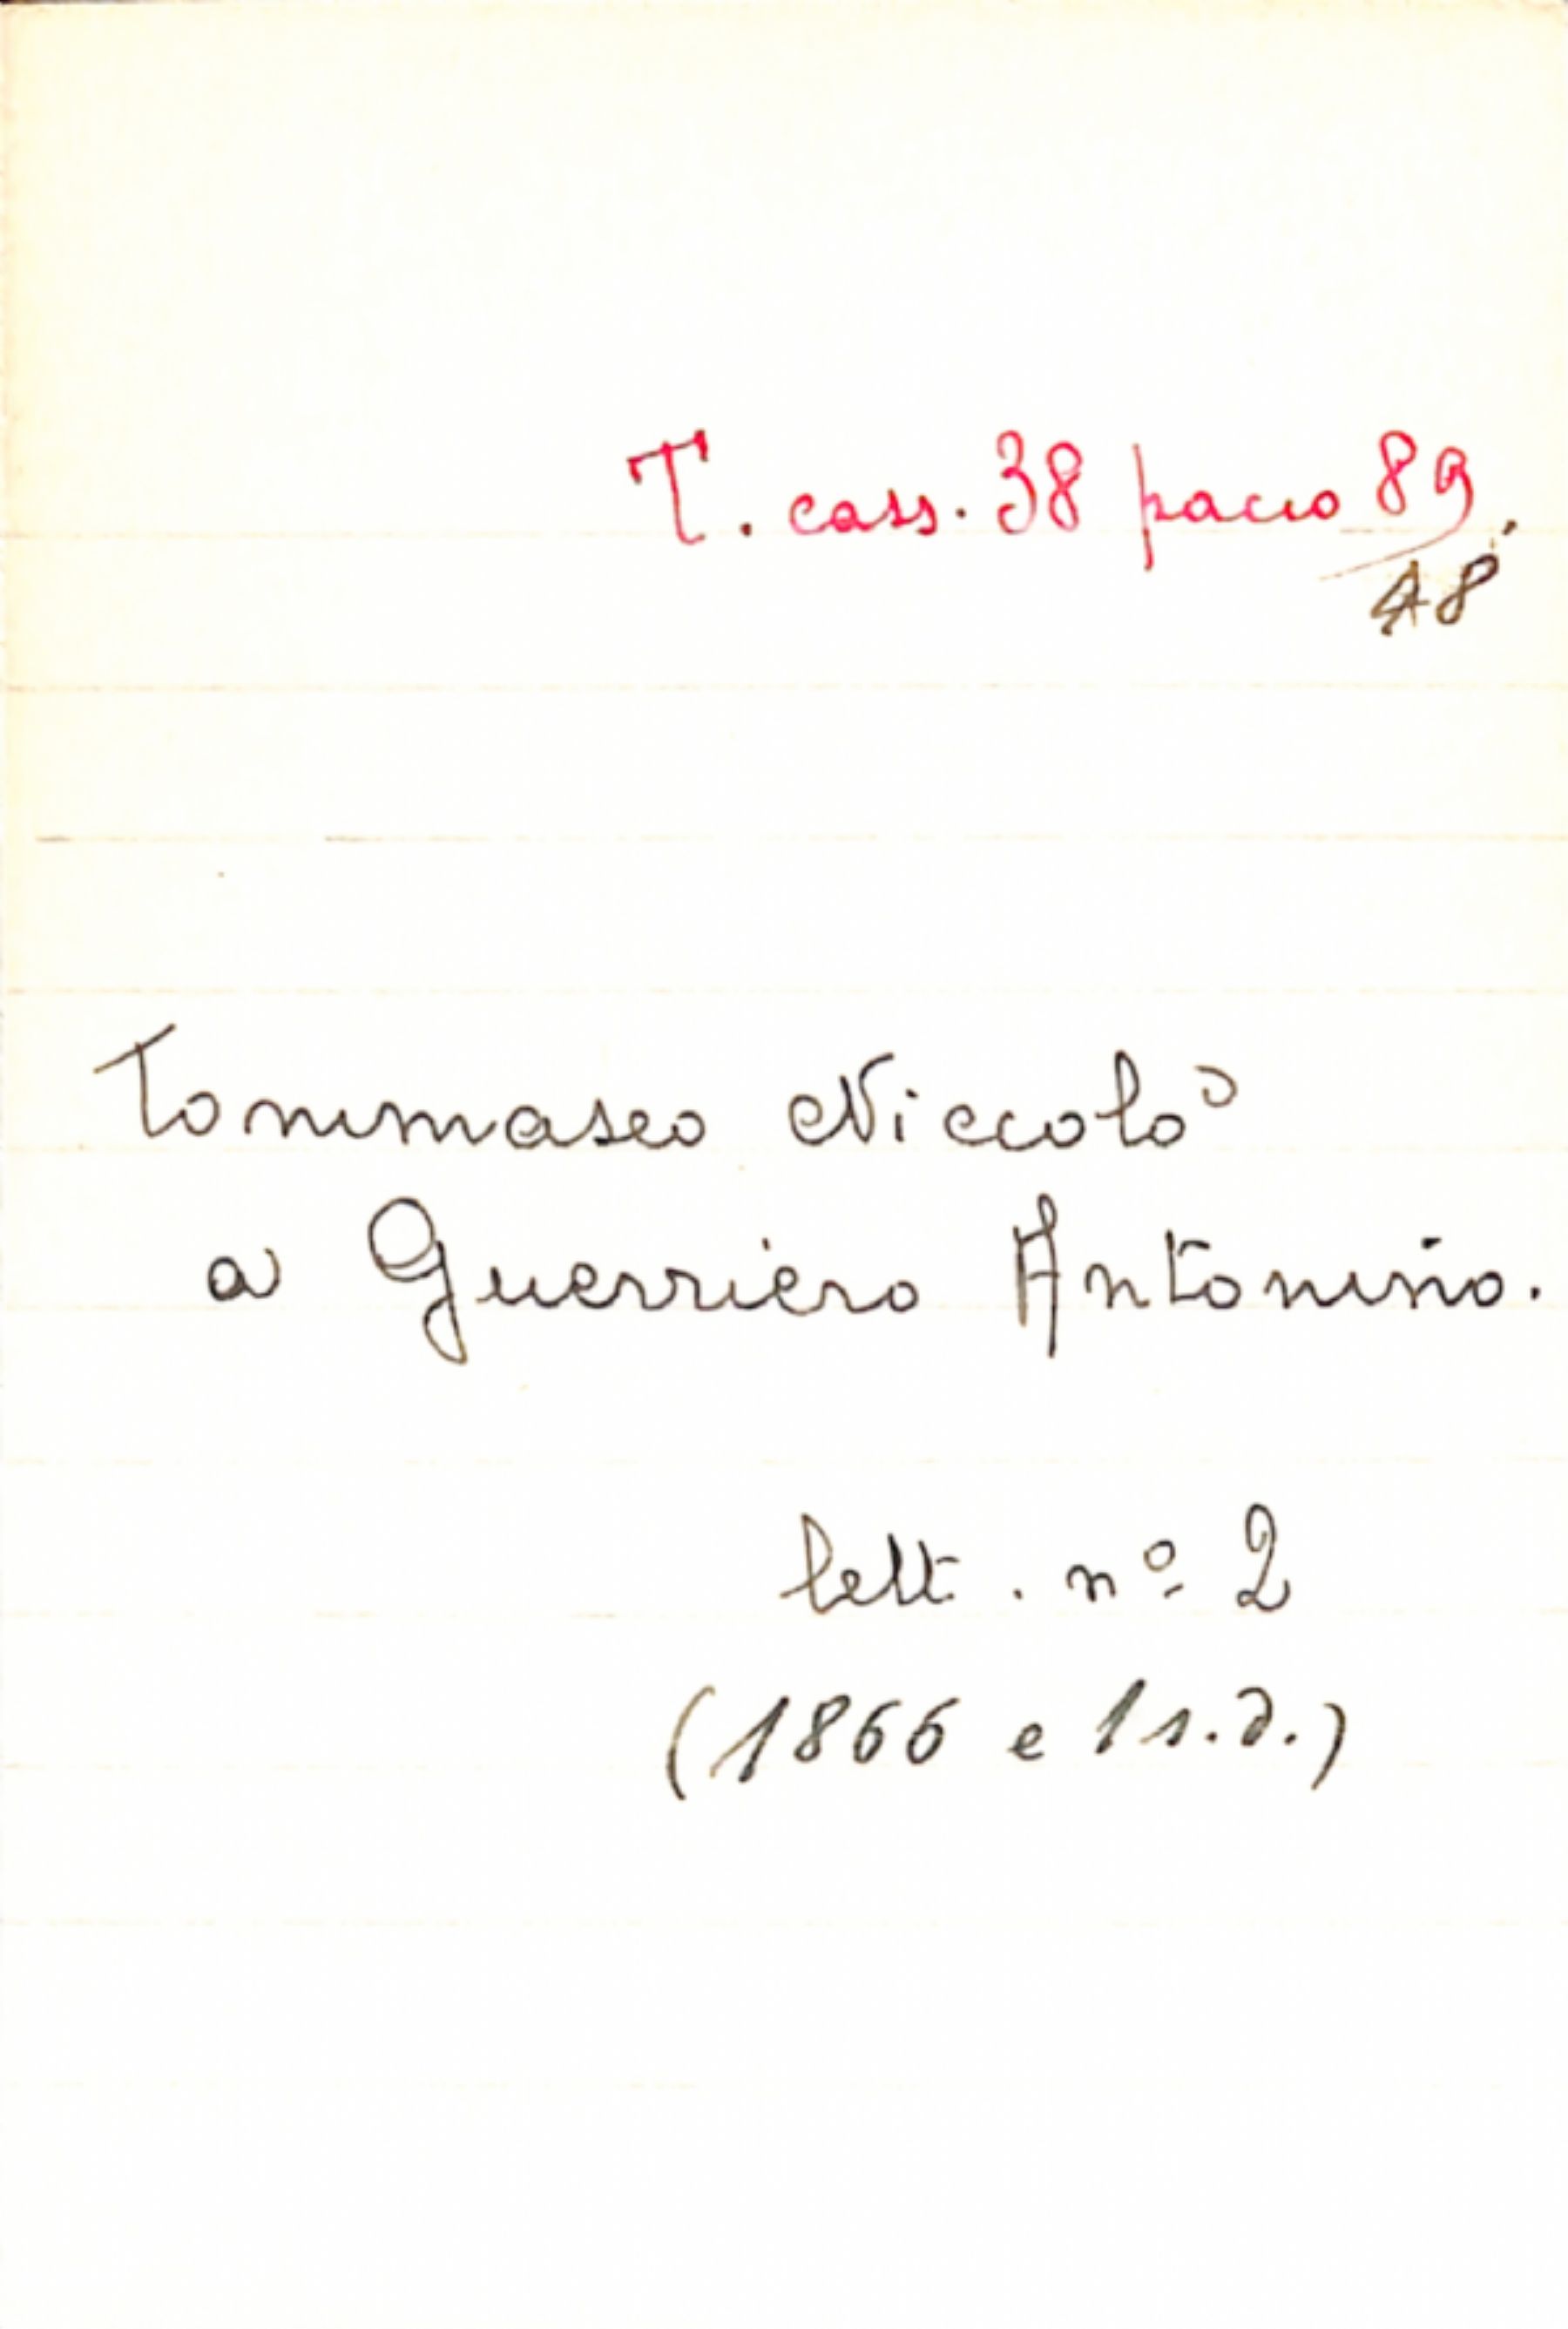 T. cass. 38 pacco 89.
48
Tommaseo Niccolò
a Guerriero Antonino.
lett. nº 2
(1866 e 1 s.d.)